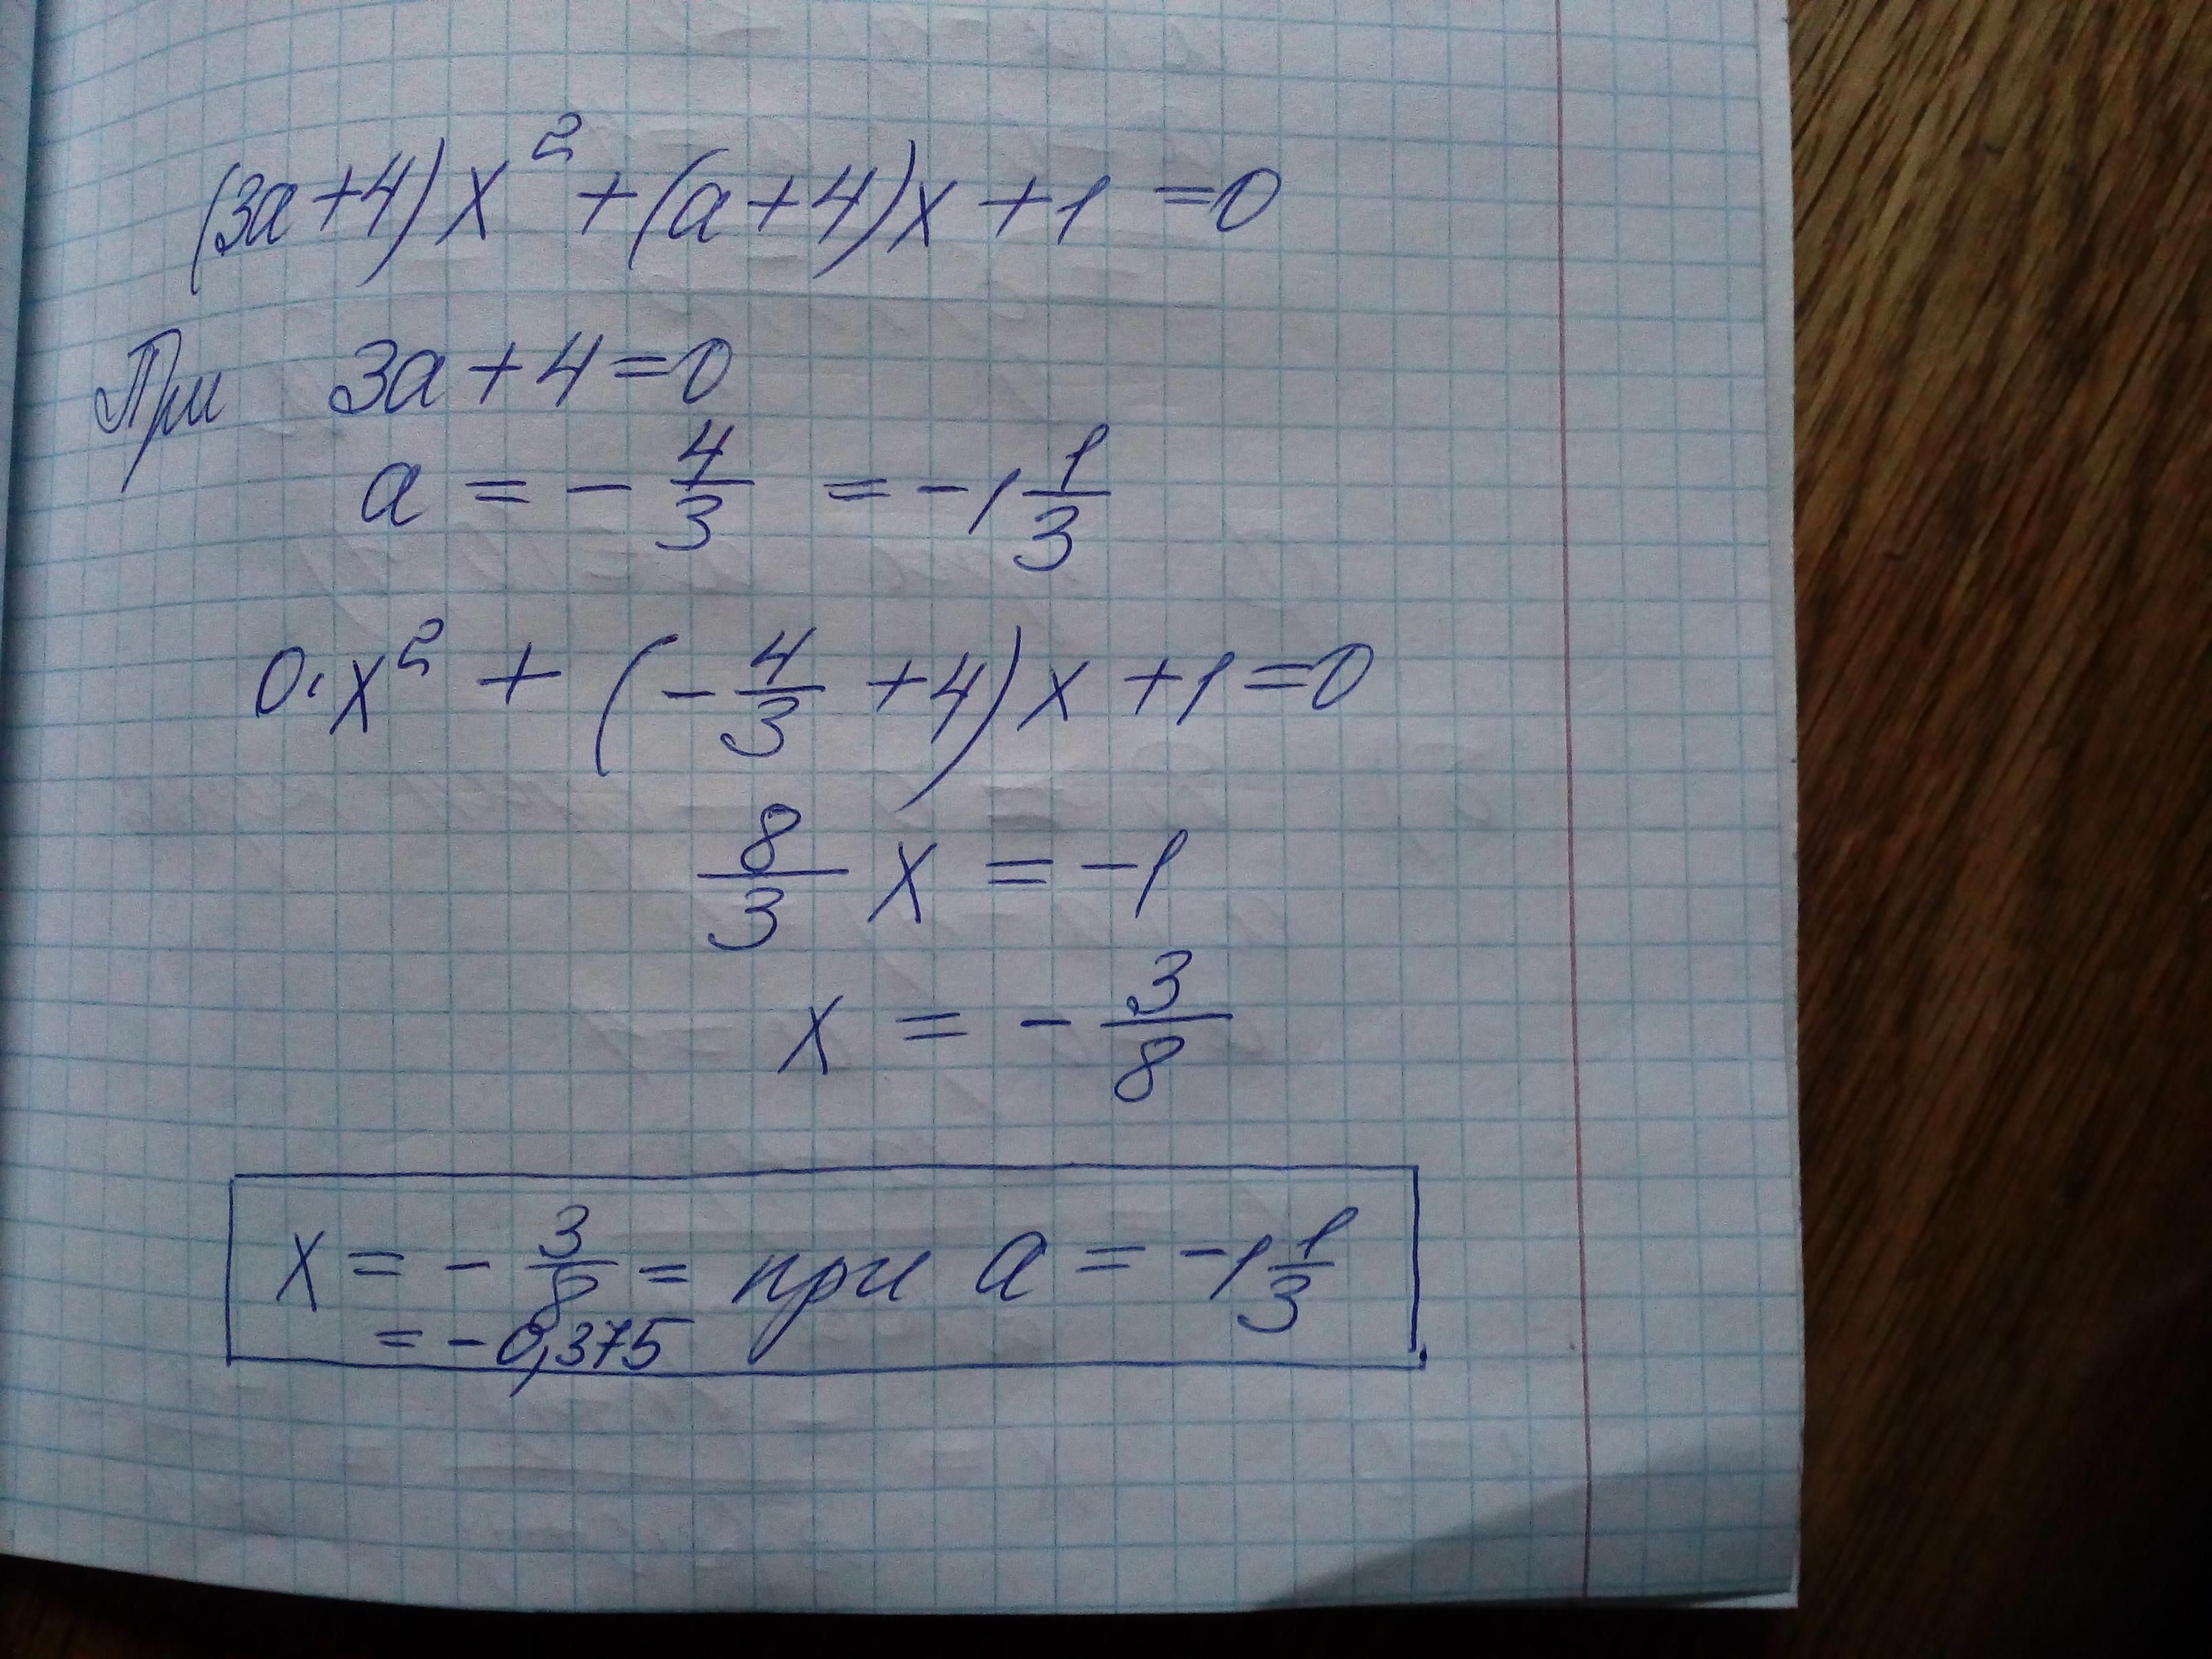 (3a+4)x²+(a+4)x+1=0
При 3a+4=0
a = -4/3 = -1 1/3
0·x² + (-4/3 +4)x+1=0
8/3 x = -1
x = -3/8
x = -3/8 = при a = -1 1/3
= -0,375